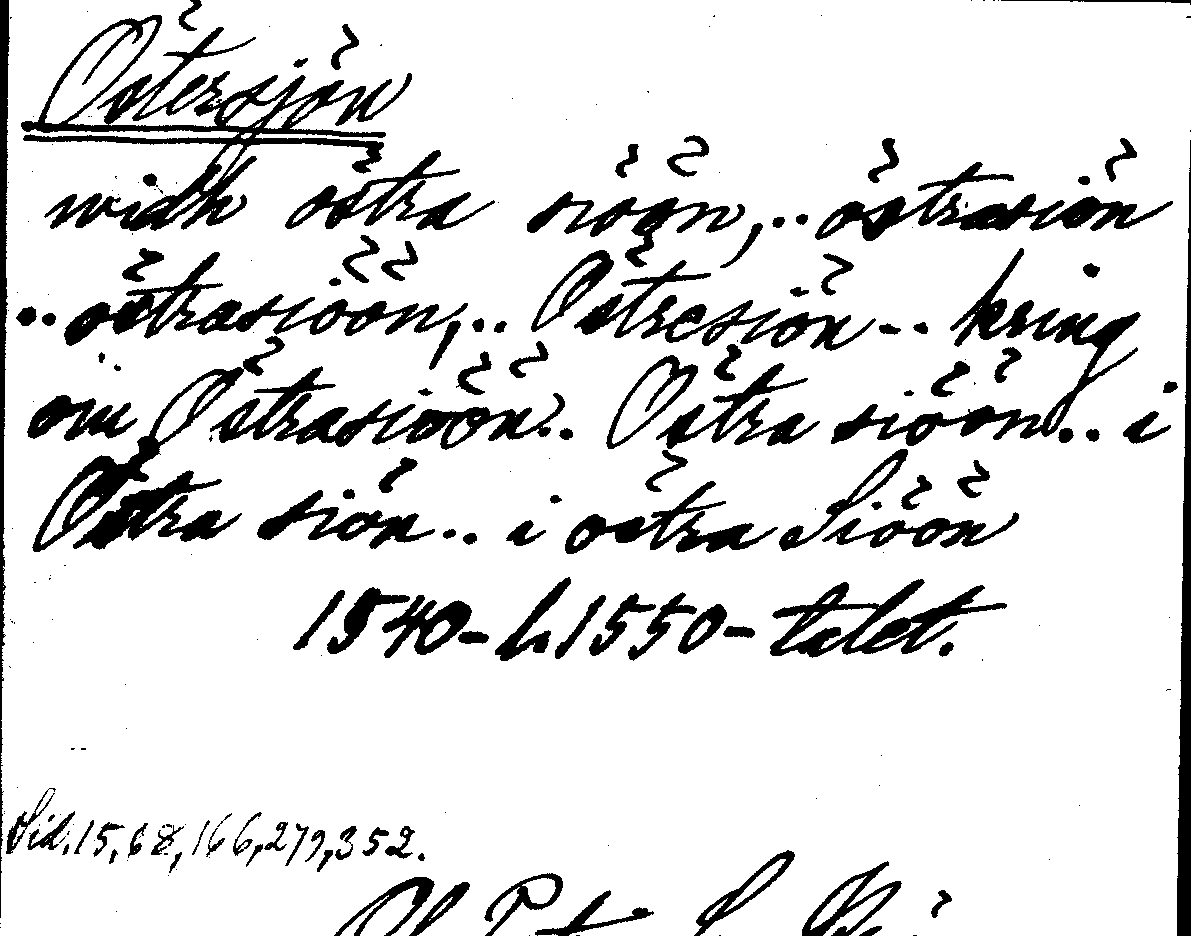 Östersjön
widh östra siöön,.. östrasiön
.. östrasiöön,.. Östresiön -- kring
om Östrasiöön.. Östra siöön.. i
Östra siön.. i östra Siöön
1540- h. 1550-talet.
Sid. 15, 68, 166, 279, 352.